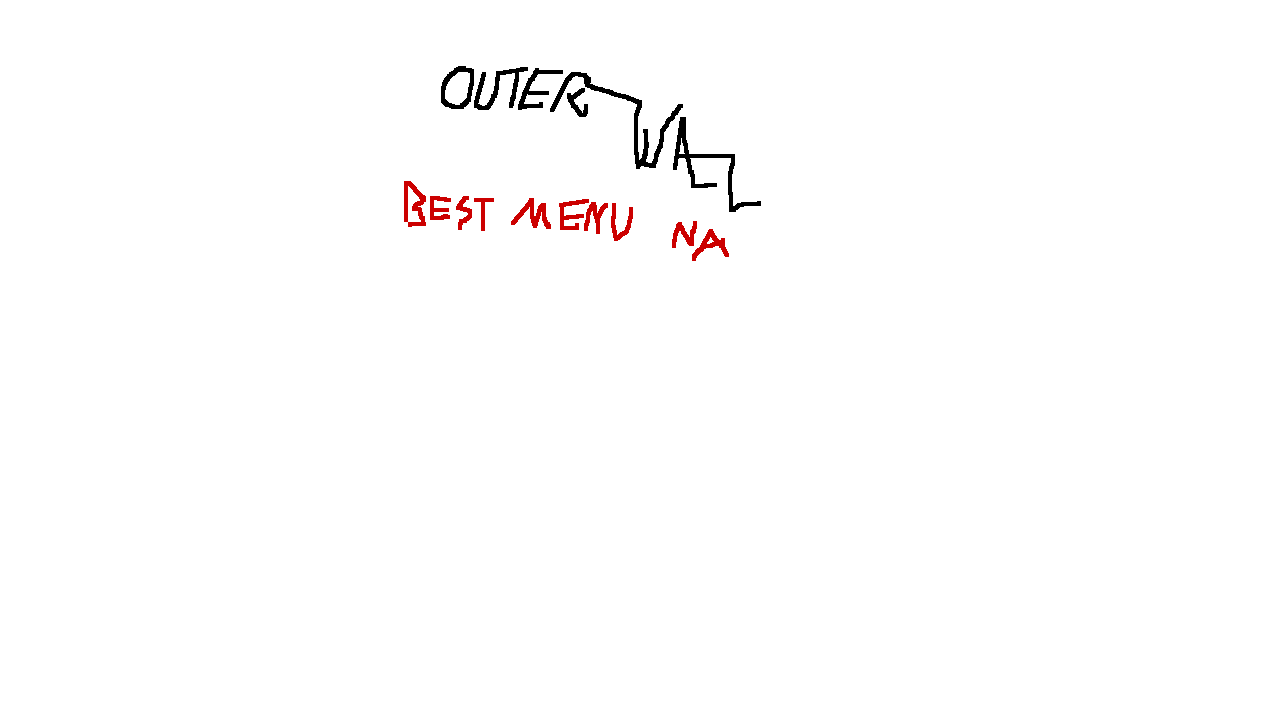 OUTER WALL
BEST MENU NA